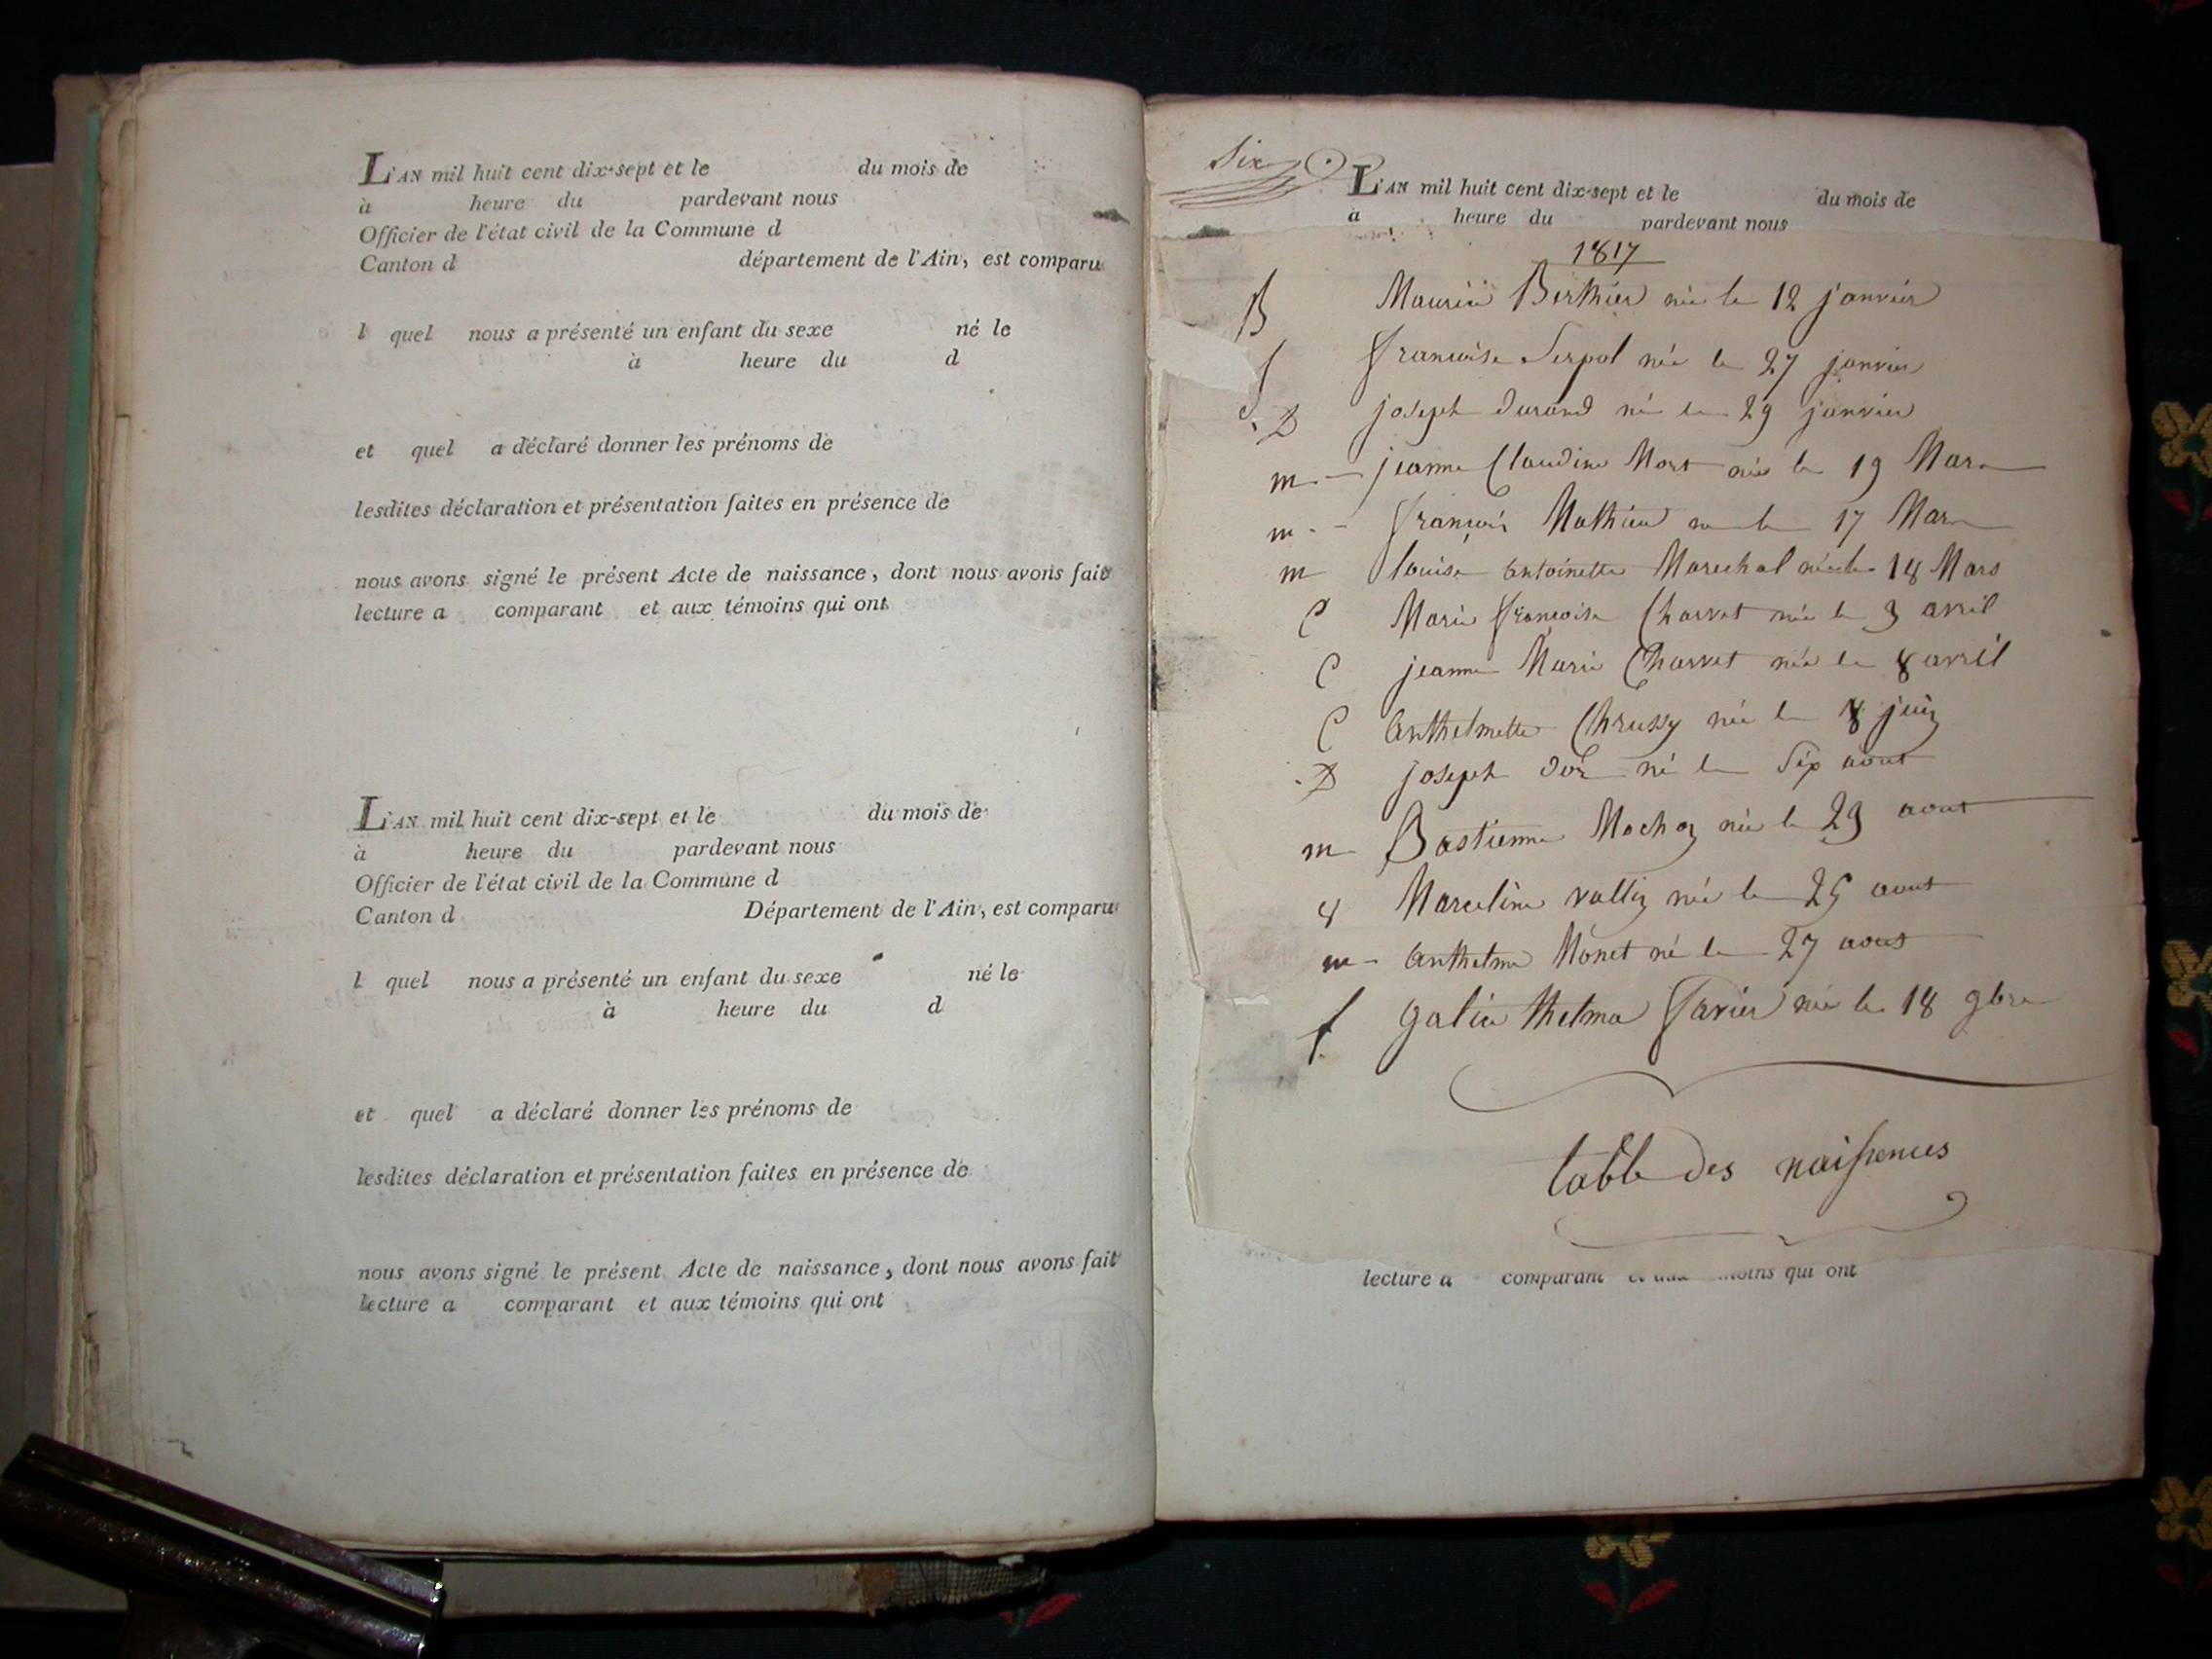 L'AN mil huit cent dix-sept et le du mois de
à heure du pardevant nous
Officier de l'état civil de la Commune d
Canton d département de l'Ain, est comparu
l quel nous a présenté un enfant du sexe né le
à heure du d
et quel a déclaré donner les prénoms de
lesdites déclaration et présentation faites en présence de
nous avons signé le présent Acte de naissance, dont nous avons fait
lecture a comparant et aux témoins qui ont
L'AN mil huit cent dix-sept et le du mois de
à heure du pardevant nous
Officier de l'état civil de la Commune d
Canton d Département de l'Ain, est comparu
l quel nous a présenté un enfant du sexe né le
à heure du d
et quel a déclaré donner les prénoms de
lesdites déclaration et présentation faites en présence de
nous avons signé le présent Acte de naissance, dont nous avons fait
lecture a comparant et aux témoins qui ont
Six
L'AN mil huit cent dix-sept et le du mois de
à heure du pardevant nous
1817
B Berthier née le 12 janvier
f francoise Serpol née le 27 janvier
D joseph durand né le 29 janvier
m jeanne Claudine Mort née le 19 Mars
m françois Mathieu né le 17 Mars
m louise antoinette Marechal née le 18 Mars
C Marie françoise Charvet née le 3 avril
C jeanne Marie Charvet née le 8 avril
C anthelmette née le 8 juin
D joseph né le Six aout
m Bastienne Mochoz née le 29 aout
v Marceline née le 25 aout
m anthelme Monet né le 27 aout
f thelma favier née le 18 9bre
table des naissences
lecture a comparant et aux témoins qui ont